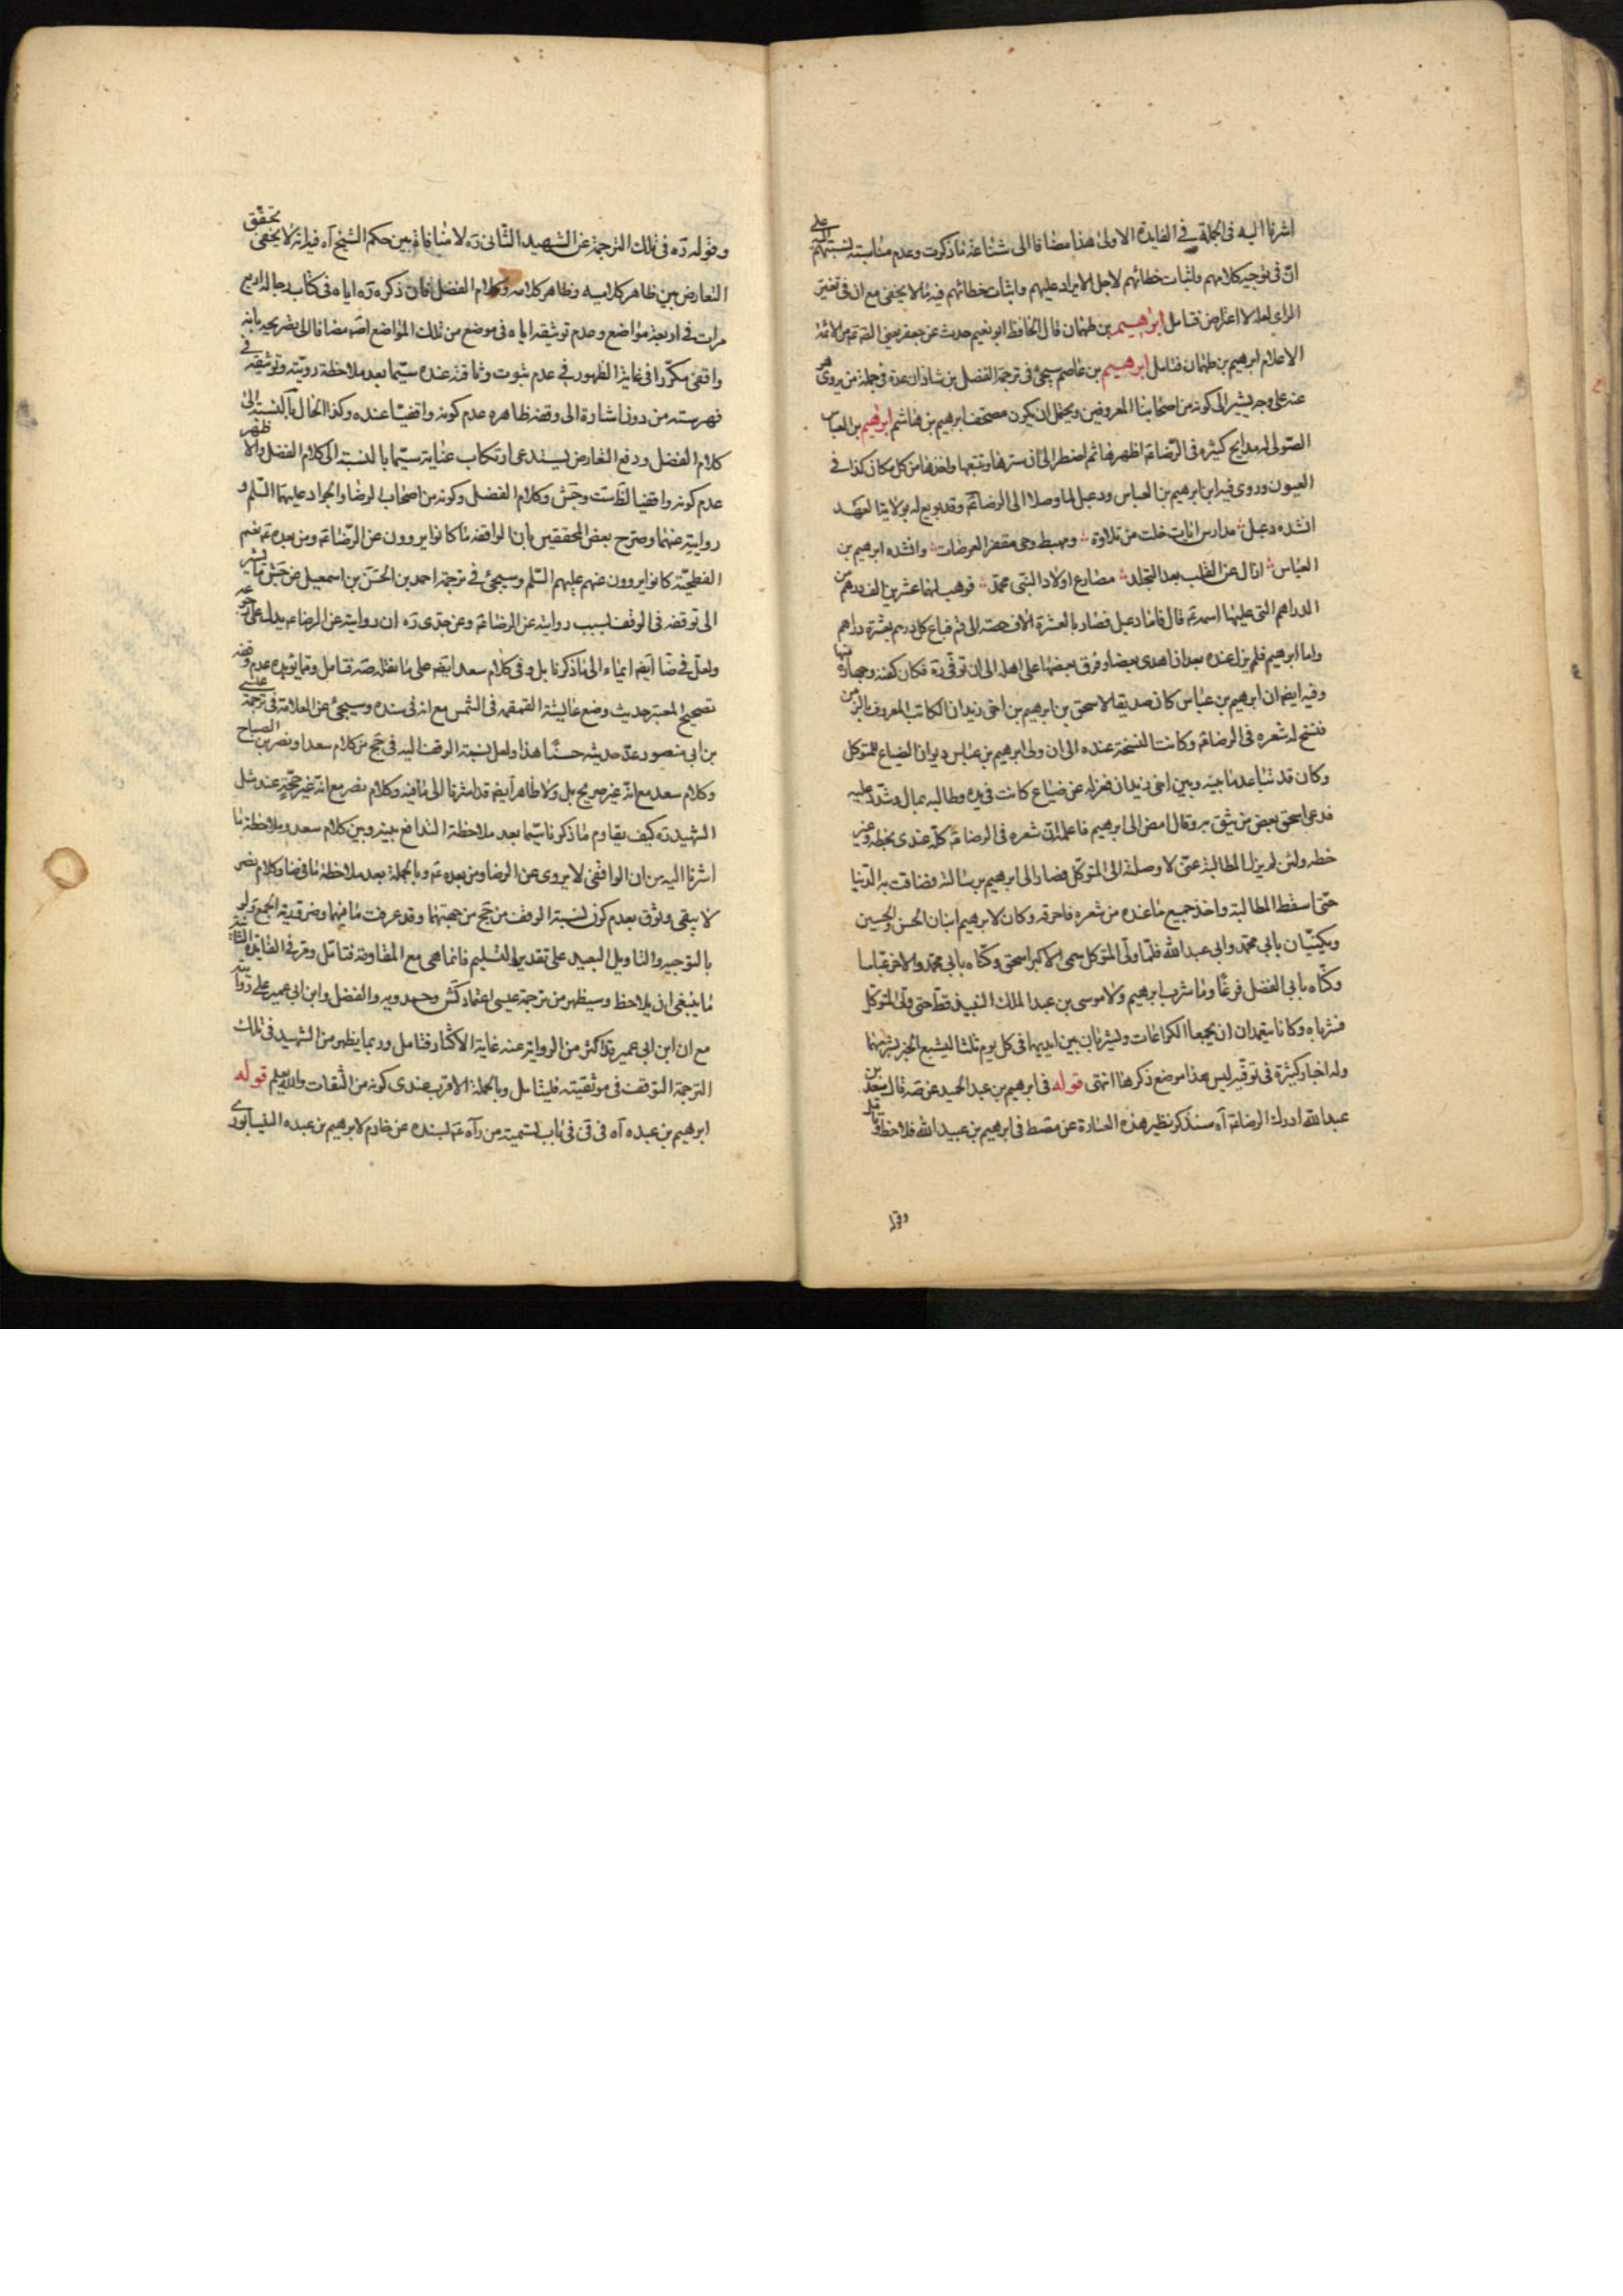 اشرنا اليه فى الجملة فى الفايدة الاولى هذا مضافا الى شناعة ما ذكرت وعدم مناسبته لنسبتهم اليه على
ان فى توجيه كلامهم واثبات خطائهم لاجل الايراد عليهم واثبات خطائهم فيه ما لا يخفى مع ان فى تغيّر
الراى لعله لا اعتراض فتامل ابرهيم بن طهمان قال الحافظ ابو نعيم حدث عن جعفر يعنى الصّ من الائمة
الاعلام ابرهيم بن طهمان فتامل ابرهيم بن عاصم سيجئ فى ترجمة الفضل بن شاذان عدة فى جملة من يروى هو
عنه على وجه يشير الى كونه من اصحابنا المعروفين ويحتمل ان يكون مصحف ابرهيم بن هاشم ابرهيم بن العباس
الصّولى له مدايح كثيرة فى الرّضا ع اظهرها ثم اضطر الى ان سترها وتتبعها واخذها من كل مكان كذا فى
العيون وروى فيه ان ابرهيم بن العباس ودعبل لما وصلا الى الرضا ع وقد بويع له بولاية العهد
انشده دعبل مدارس ايات خلت من تلاوة ومهبط وحى مقفر العرصات وانشده ابرهيم بن
العباس ازال عن القلب بعد التجلد مصارع اولاد النبى محمد فوهب لهما عشرين الف درهم من
الدراهم التى عليها اسمه ع قال فاما دعبل فصار بالعشرة الاف حصته الى قم فباع كل درهم بعشرة دراهم
واما ابرهيم فلم يزل عنده بعد ان اهدى بعضا وفرق بعضها على اهله الى ان توفى ره فكان كفنه وجهازه منها
وفيه ايضا ان ابرهيم بن عباس كان صديقا لاسحق بن ابرهيم بن اخى زيدان الكاتب المعروف بالزمن
فنسخ له شعره فى الرضا ع وكانت النسخة عنده الى ان ولى ابرهيم بن عباس ديوان الضياع للمتوكل
وكان قد تباعد ما بينه وبين اخى زيدان فعزله عن ضياع كانت فى يده وطالبه بمال وشدّد عليه
فدعى اسحق بعض من يثق به وقال امض الى ابرهيم فاعلمه ان شعره فى الرضا ع كلّه عندى بخطه وغير
خطه ولئن لم يزل المطالبة عنّى لاوصلنه الى المتوكّل فصار الى ابرهيم برسالته فضاقت به الدّنيا
حتى اسقط المطالبة واخذ جميع ما عنده من شعره فاحرقه وكان لابرهيم ابنان الحسن والحسين
ويكنيّان بابى محمد وابى عبد الله فلمّا ولّى المتوكل سمى الاكبر اسحق وكنّاه بابى محمد والاخر عبّاسا
وكنّاه بابى الفضل فزعًا وما شرب ابرهيم ولا موسى بن عبد الملك النبيذ قطّ حتى ولّى المتوكّل
فشرباه وكانا يتعمدان ان يجمعا الكراعات وليشربان بين ايديهما فى كل يوم ثلثا ليشيع الخبر بشربهما
وله اخبار كثيرة فى توقّيه ليس هذا موضع ذكرها انتهى قوله فى ابرهيم بن عبد الحميد عن صه قال سعد بن
عبد الله ادرك الرضا ع آه سنذكر نظير هذه العبارة عن مصط فى ابرهيم بن عبيد الله فلاحظ وتامل
وقوله
وقوله ره فى تلك الترجمة عن الشهيد الثانى ره لا منافاة بين حكم الشيخ آه فيه انه لا يخفى تحقق
التعارض بين ظاهر كلاميه وظاهر كلامه وكلام الفضل فان ذكره ره اياه فى كتاب رجاله اربع
مرات فى اربعة مواضع وعدم توثيقه اياه فى موضع من تلك المواضع اصّه مضافا الى تصريحه بانه
واقفى مكرّرا فى غاية الظهور فى عدم ثبوت وثاقته عنده سيّما بعد ملاحظة رويّته وتوثيقه فى
فهرسته من دون اشارة الى وقفه ظاهره عدم كونه واقفيّا عنده وكذا الحال بالنسبة الى
كلام الفضل ودفع التعارض يستدعى ارتكاب عناية سيّما بالنسبة الى كلام الفضل والا ظهر
عدم كونه واقفيا لظ ست وجش وكلام الفضل وكونه من اصحاب الرضا والجواد عليهما السّلم و
روايته عنهما وصرّح بعض المحققين بان الواقفة ما كانوا يروون عن الرّضا ع ومن بعده ع نعم
الفطحيّة كانوا يروون عنهم عليهم السّلم وسيجئ فى ترجمة احمد بن الحسن بن اسمعيل عن جش ما يشير
الى توقفه فى الوقف لسبب روايته عن الرضا ع وعن جدى ره ان روايته عن الرضا ع يدل على رجوعه
ولعل فى ضا ايضا ايماء الى ما ذكرنا بل وفى كلام سعد ايضا على ما نقله صه فتامل ومما يؤيده عدم وقفه
تصحيح المعتبر حديث وضع عائشة القمقمة فى الشمس مع انه فى سنده وسيجئ عن العلامة فى ترجمة عيسى
بن ابى منصور عدّ حديثه حسنًا هذا ولعل نسبة الوقف اليه فى جخ من كلام سعد او نصر بن الصباح
وكلام سعد مع انّه غير صريح بل ولا ظاهر ايضا قد اشرنا الى ما فيه وكلام نصر مع انّه غير حجّة عند مثل
الشهيد ره كيف يقاوم ما ذكرنا سيّما بعد ملاحظة التدافع بينه وبين كلام سعد وملاحظة ما
اشرنا اليه من ان الواقفى لا يروى عن الرضا ومن بعده ع وبالجملة بعد ملاحظة ما فى ضا وكلام نصر
لا يبقى وثوق بعدم كون نسبة الوقف من جخ من جهتهما وقد عرفت ما فيهما وضرورة الجمع ولو
بالتوجيه والتاويل البعيد على تقدير التسليم فانما هى مع المقاومة فتامل ومر فى الفايدة الثانية
ما ينبغى ان يلاحظ وسيظهر من ترجمة عيسى اعتماد كش وحمدويه والفضل وابن ابى عمير على روايته
مع ان ابن ابى عمير قد اكثر من الرواية عنه غاية الاكثار فتامل وربما يظهر من الشهيد فى تلك
الترجمة التوقف فى موثقيته فليتامل وبالجملة الاقرب عندى كونه من الثقات والله يعلم قوله
ابرهيم بن عبده آه فى قى فى باب تسمية من رآه ع بسنده عن خادم لابرهيم بن عبده النيسابورى